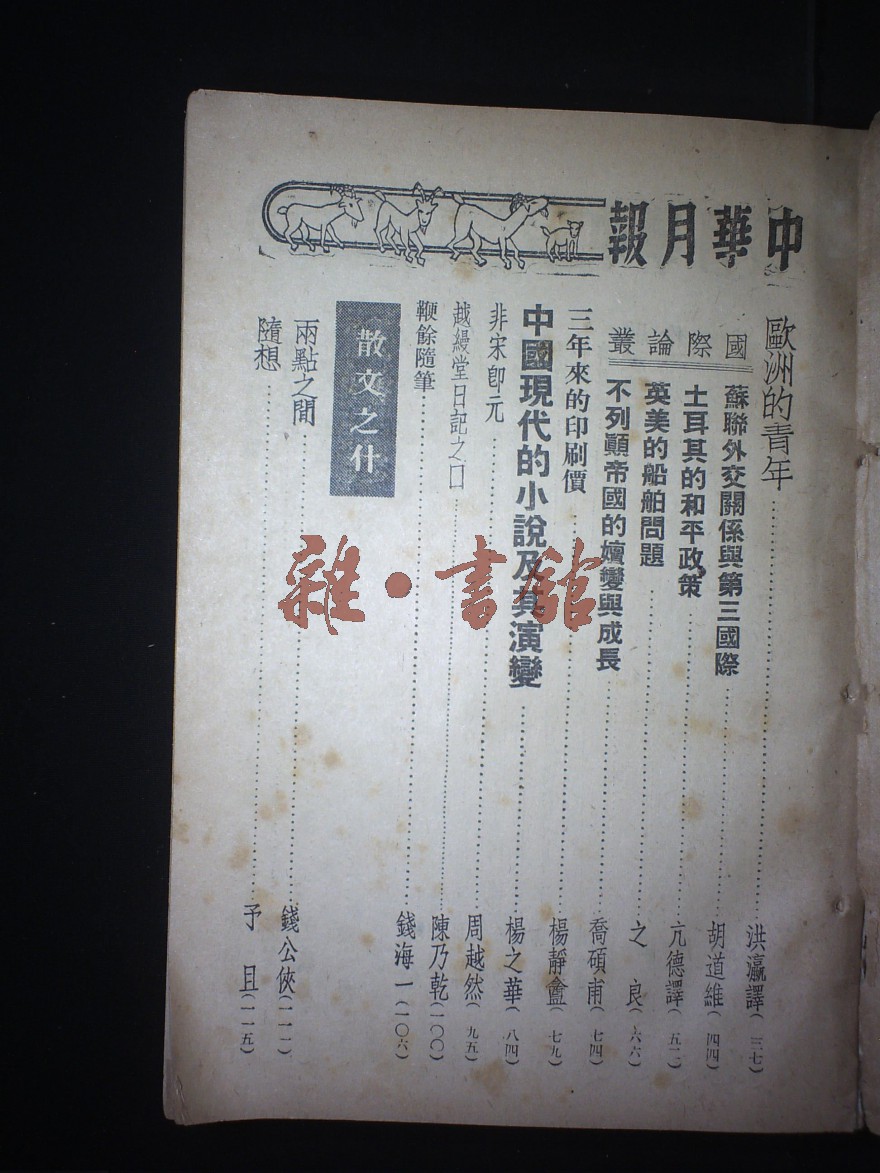 中華月報
歐洲的青年……洪瀛譯（三七）
國際論叢
蘇聯外交關係與第三國際……胡道維（四四）
土耳其的和平政策……亢德譯（五二）
英美的船舶問題……之良（六六）
不列顛帝國的嬗變與成長……喬碩甫（七四）
三年來的印刷價……楊靜盦（七九）
中國現代的小說及其演變……楊之華（八四）
非宋卽元……周越然（九五）
越縵堂日記之口……陳乃乾（一〇〇）
鞭餘隨筆……錢海一（一〇六）
散文之什
兩點之間……錢公俠（一一一）
隨想……予且（一一五）
雜·書館